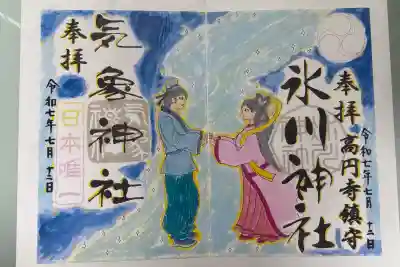 奉拝
高円寺鎮守
氷川神社
令和七年七月十二日
奉拝
気象神社
令和七年七月十二日
日本唯一